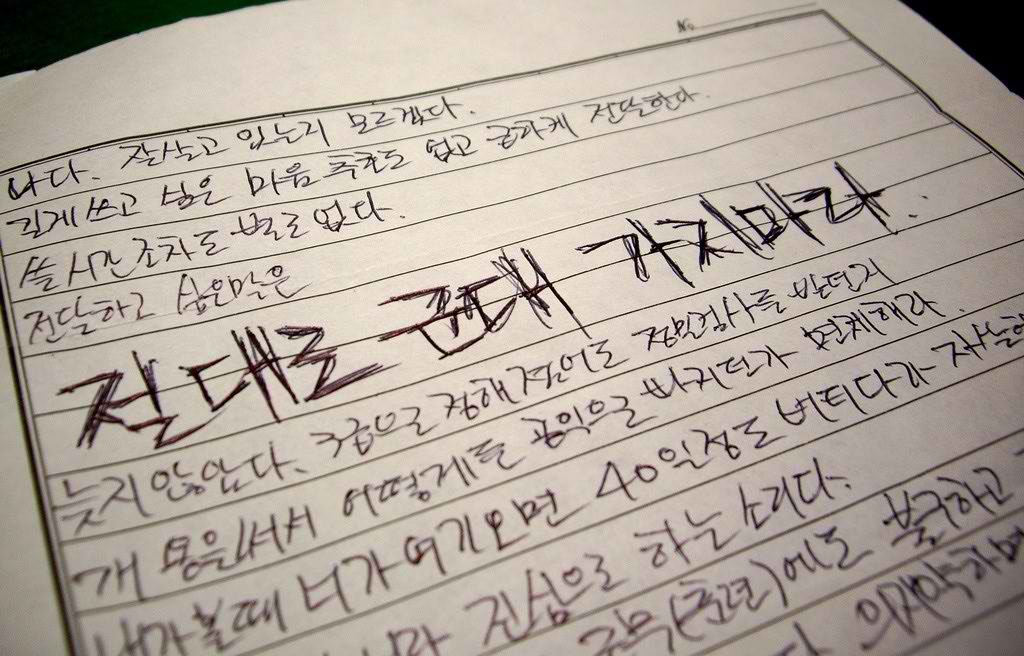 No.
나다. 잘살고 있는지 모르겠다.
길게 쓰고 싶은 마음 추호도 없고 급하게 전달한다.
쓸 시간조차도 별로 없다.
전달하고 싶은말은
절대로 군대 가지마라..
늦지 않았다. 3급으로 정해졌어도 정밀검사를 받던지
개 몽은써서 어떻게든 공익으로 빠지던가 면제해라.
내가볼때 너가 여기오면 40일정도 버티다가 자살
진심으로 하는 소리다.
근무(훈련)에도 불구하고
의지약하면